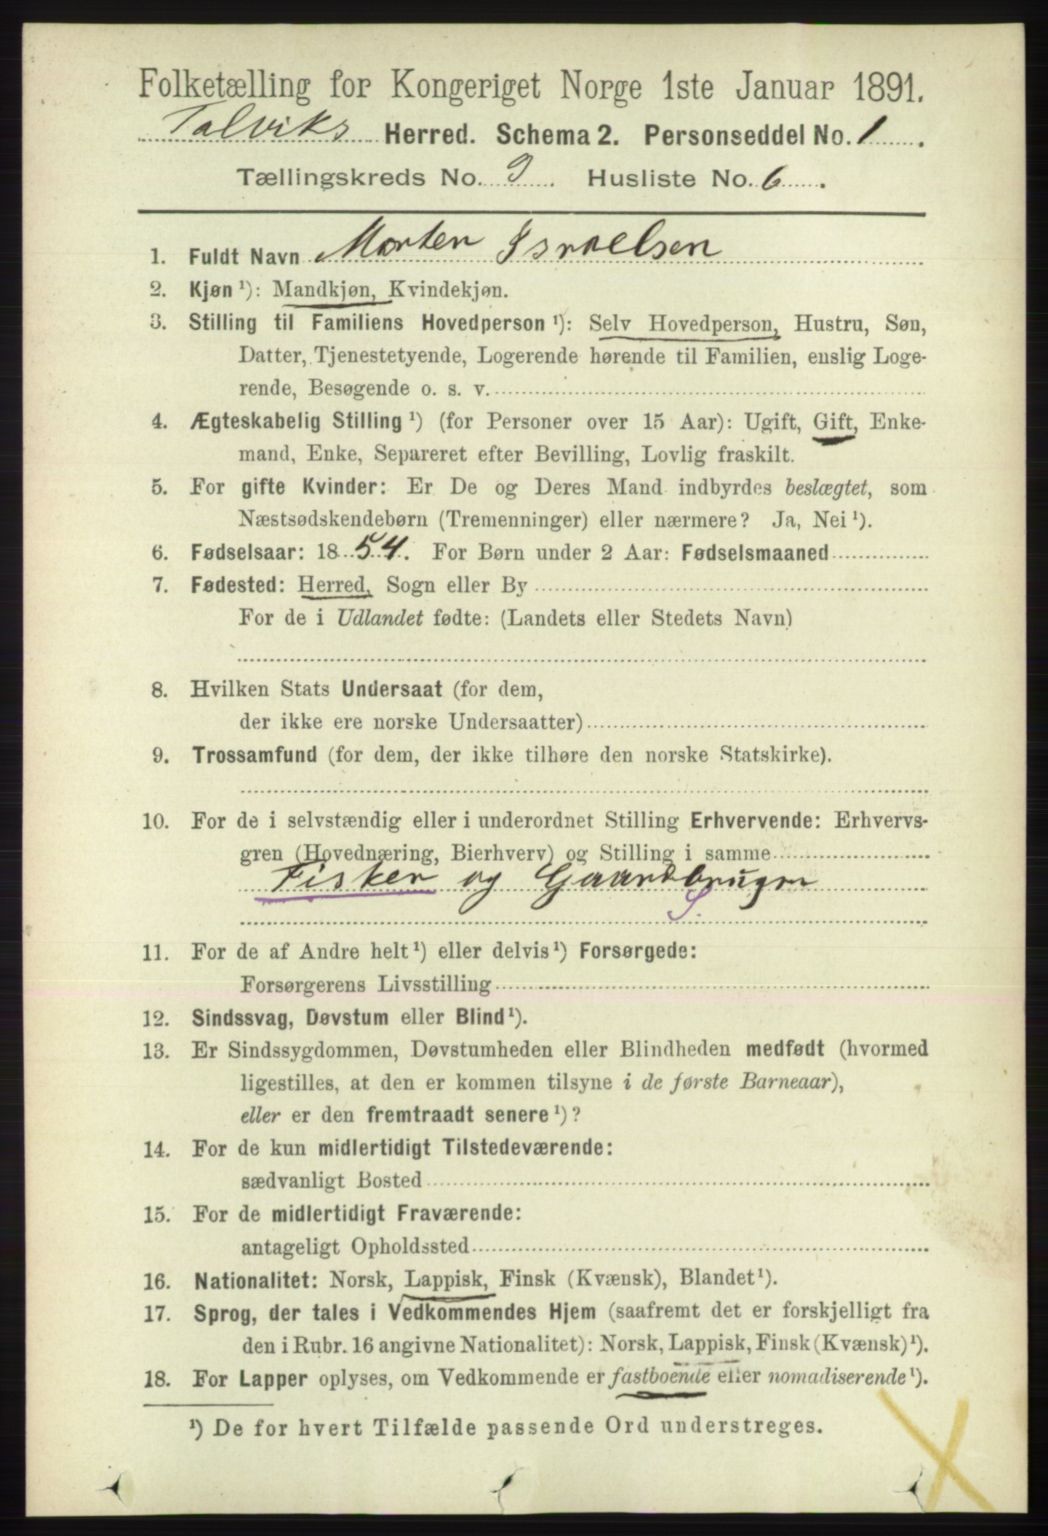 Folketælling for Kongeriget Norge 1ste Januar 1891.
Talviks Herred. Schema 2. Personseddel No. 1.
Tællingskreds No. 9. Husliste No. 6.
1. Fuldt Navn Morten Israelsen
2. Kjøn ¹): Mandkjøn, Kvindekjøn.
3. Stilling til Familiens Hovedperson ¹): Selv Hovedperson, Hustru, Søn,
Datter, Tjenestetyende, Logerende hørende til Familien, enslig Loge-
rende, Besøgende o. s. v.
4. Ægteskabelig Stilling ¹) (for Personer over 15 Aar): Ugift, Gift, Enke-
mand, Enke, Separeret efter Bevilling, Lovlig fraskilt.
5. For gifte Kvinder: Er De og Deres Mand indbyrdes beslægtet, som
Næstsødskendebørn (Tremenninger) eller nærmere? Ja, Nei ¹).
6. Fødselsaar: 1854. For Børn under 2 Aar: Fødselsmaaned
7. Fødested: Herred, Sogn eller By
For de i Udlandet fødte: (Landets eller Stedets Navn)
8. Hvilken Stats Undersaat (for dem,
der ikke ere norske Undersaatter)
9. Trossamfund (for dem, der ikke tilhøre den norske Statskirke).
10. For de i selvstændig eller i underordnet Stilling Erhvervende: Erhvervs-
gren (Hovednæring, Bierhverv) og Stilling i samme
Fisker og Gaardbruger
S.
11. For de af Andre helt ¹) eller delvis ¹) Forsørgede:
Forsørgerens Livsstilling
12. Sindssvag, Døvstum eller Blind ¹).
13. Er Sindssygdommen, Døvstumheden eller Blindheden medfødt (hvormed
ligestilles, at den er kommen tilsyne i de første Barneaar),
eller er den fremtraadt senere ¹)?
14. For de kun midlertidigt Tilstedeværende:
sædvanligt Bosted
15. For de midlertidigt Fraværende:
antageligt Opholdssted
16. Nationalitet: Norsk, Lappisk, Finsk (Kvænsk), Blandet ¹).
17. Sprog, der tales i Vedkommendes Hjem (saafremt det er forskjelligt fra
den i Rubr. 16 angivne Nationalitet): Norsk, Lappisk, Finsk (Kvænsk) ¹).
18. For Lapper oplyses, om Vedkommende er fastboende eller nomadiserende ¹).
¹) De for hvert Tilfælde passende Ord understreges.